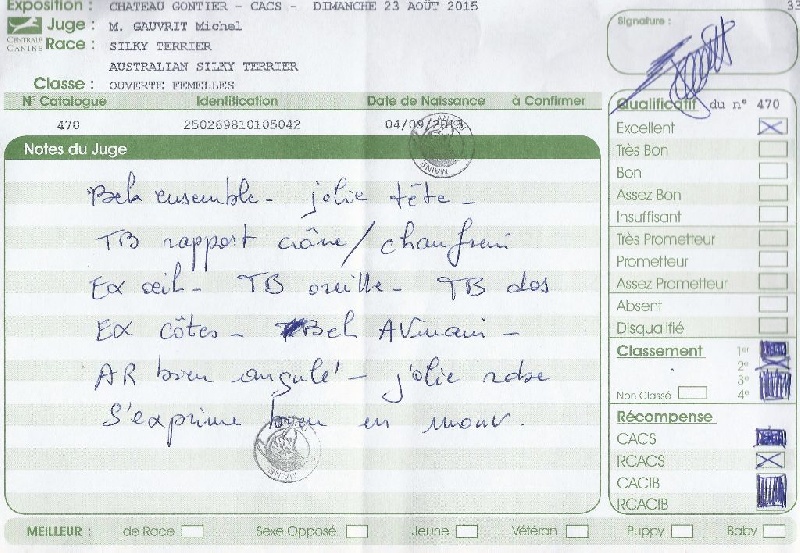 Exposition : CHATEAU GONTIER - CACS - DIMANCHE 23 AOÛT 2015 33
Juge : M. GAUVRIT Michel
CENTRALE CANINE
Race : SILKY TERRIER
AUSTRALIAN SILKY TERRIER
Classe : OUVERTE FEMELLES
Signature :
N° Catalogue Identification Date de Naissance à Confirmer
470 250269810105042 04/09/2013
Notes du Juge
Bel ensemble - jolie tête -
TB rapport crâne / chanfrein
Ex œil - TB oreille - TB dos
Ex côtes - Bel AVmain -
AR bien angulé - jolie robe
S'exprime bien en mouv.
Qualificatif du n° 470
Excellent
Très Bon
Bon
Assez Bon
Insuffisant
Très Prometteur
Prometteur
Assez Prometteur
Absent
Disqualifié
Classement 1er
2e
3e
Non Classé 4e
Récompense
CACS
RCACS
CACIB
RCACIB
MEILLEUR : de Race Sexe Opposé Jeune Vétéran Puppy Baby